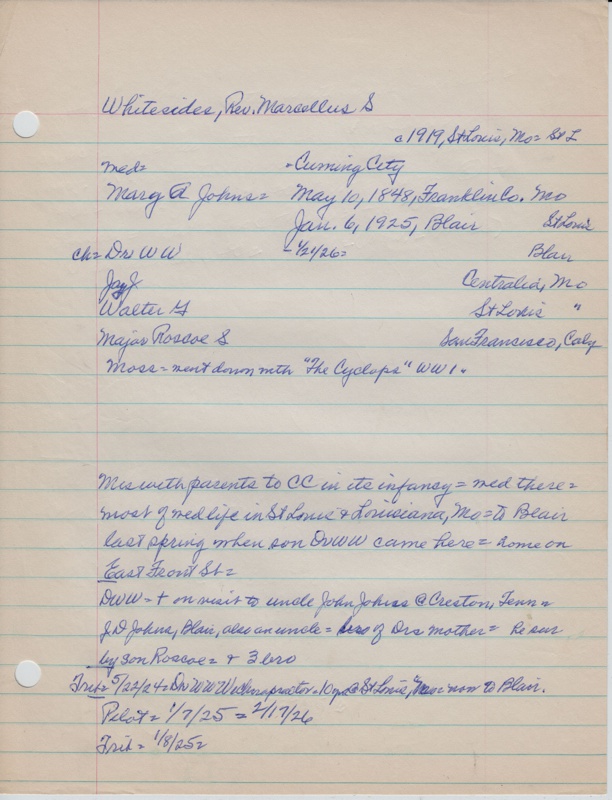 Whitesides, Rev. Marcellus S
c1919, St Louis, Mo = St L
med= = Cuming City
Mary A Johns = May 10, 1848, Franklin Co. Mo
Jan. 6, 1925, Blair St Louis
ch= Dr W W - 1/21/26= Blair
Jay J. Centralia, Mo
Walter G St Louis "
Major Roscoe S San Francisco, Calif
Moss = went down with "The Cyclops" WW1.
Mrs with parents to CC in its infancy = med there =
most of med life in St Louis & Louisiana, Mo = to Blair
last spring when son Dr WW came here = home on
East Front St =
DWW = + on visit to uncle John Johns @ Creston, Tenn =
J.D Johns, Blair, also an uncle = bro of Drs mother = He sur
by son Roscoe = & 3 bro
Trib = 5/22/24 = Dr WW W = 10 @ St Louis, Mo = now to Blair.
Pilot = 1/7/25 = 2/17/26
Trib = 1/8/25=